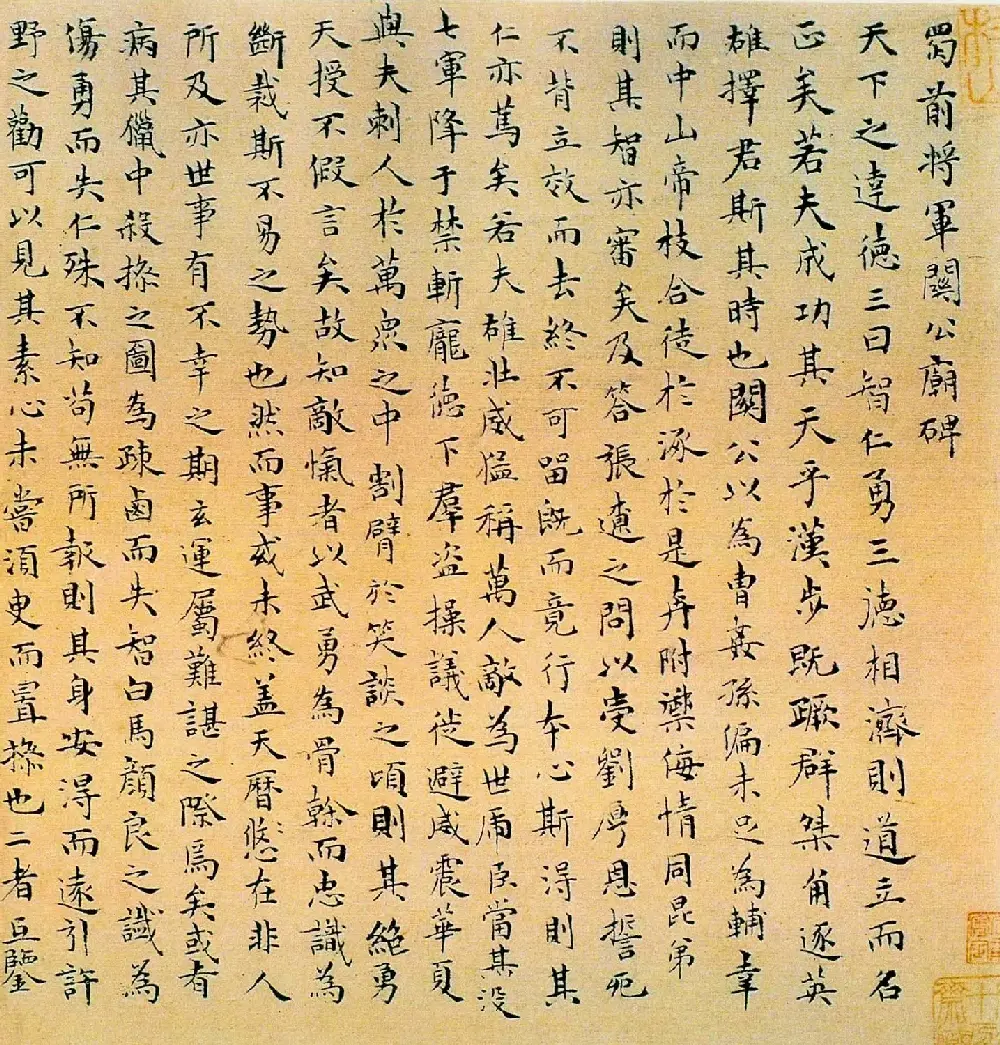 蜀前将軍關公廟碑
天下之達德三曰智仁勇三德相濟則道立而名
正矣若夫成功其天乎漢步既蹶群桀角逐英
雄擇君斯其時也關公以為曺姦孫偏未足為輔幸
而中山帝枝合徒於涿於是奔附禦侮情同昆弟
則其智亦審矣及答張遼之問以受劉厚恩誓死
不背立效而去終不可留既而竟行本心斯得則其
仁亦篤矣若夫雄壯威猛稱萬人敵為世虎臣當其没
七軍降于禁斬龐德下羣盗操議徙避威震華夏
與夫刺人於萬衆之中割臂於笑談之頃則其絶勇
天授不假言矣故知敵愾者以武勇為骨榦而忠識為
斷裁斯不易之勢也然而事或未終盖天曆悠悠在非人
所及亦世事有不幸之期玄運屬難諶之際焉矣或者
病其獵中殺操之圖為疎鹵而失智白馬顔良之識為
傷勇而失仁殊不知苟無所報則其身安得而遠引許
野之勸可以見其素心未嘗須臾而置操也二者互鑒